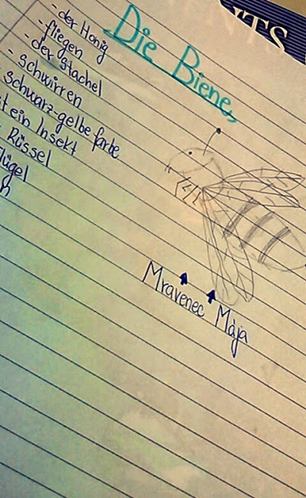 Die Biene,
- der Honig
fliegen
- der stachel
- schwirren
schwarz-gelbe farbe
ein Insekt
Rüssel
Mravenec Mája